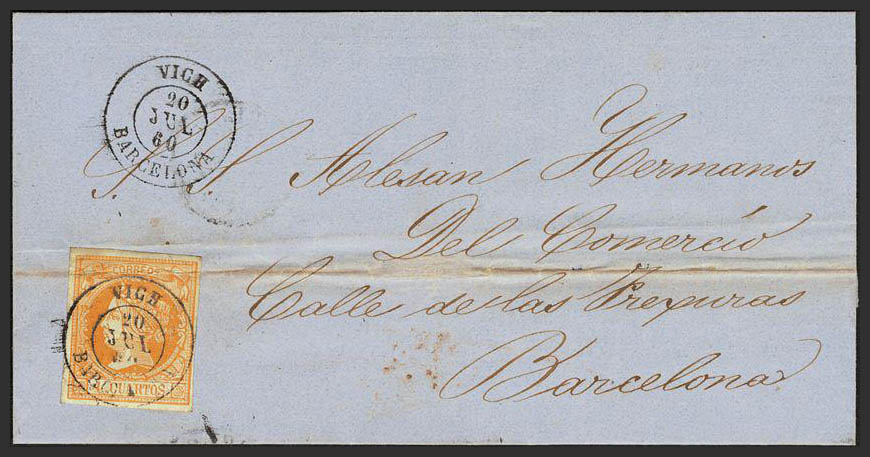 VICH
20
JUL
60
BARCELONA
S. S. Alesan Hermanos
Del Comercio
Calle de las Prexuras
Barcelona
CORREOS
VICH
20
JUL
CUARTOS